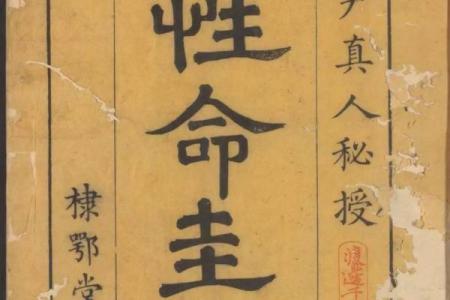 尹真人秘授
性命圭
棣鄂堂